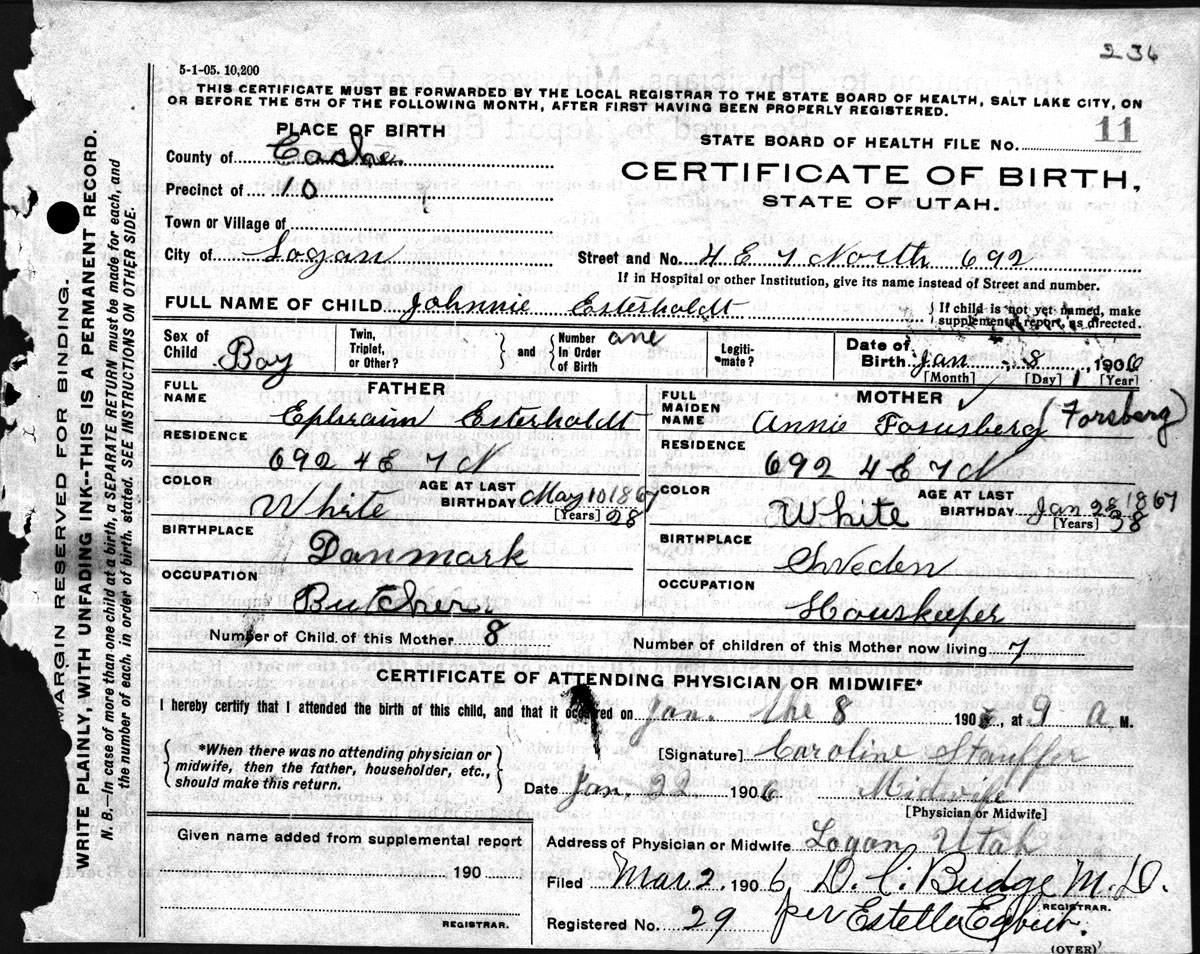 234
5-1-05. 10,200
THIS CERTIFICATE MUST BE FORWARDED BY THE LOCAL REGISTRAR TO THE STATE BOARD OF HEALTH, SALT LAKE CITY, ON
OR BEFORE THE 5TH OF THE FOLLOWING MONTH, AFTER FIRST HAVING BEEN PROPERLY REGISTERED.
PLACE OF BIRTH
STATE BOARD OF HEALTH FILE NO. 11
County of Cache
CERTIFICATE OF BIRTH,
Precinct of 10
STATE OF UTAH.
Town or Village of
City of Logan
Street and No. 4 E 7 North 692
If in Hospital or other Institution, give its name instead of Street and number.
FULL NAME OF CHILD Johnnie Esterholdt
If child is not yet named, make
supplemental report, as directed.
Sex of Child Boy
Twin, Triplet, or Other?
and
Number in Order of Birth one
Legiti-mate?
Date of Birth Jan 8, 1906
[Month] [Day] [Year]
FATHER
FULL NAME Ephraim Esterholdt
RESIDENCE
692 4 E 7 N
COLOR White
AGE AT LAST BIRTHDAY May 10 1867
[Years] 28
BIRTHPLACE
Danmark
OCCUPATION
Butcher.
MOTHER
FULL MAIDEN NAME Annie Fosusberg (Forsberg)
RESIDENCE
692 4 E 7 N
COLOR White
AGE AT LAST BIRTHDAY Jan 28 1867
[Years] 38
BIRTHPLACE
Sweden
OCCUPATION
Houskeeper
Number of Child of this Mother 8
Number of children of this Mother now living 7
CERTIFICATE OF ATTENDING PHYSICIAN OR MIDWIFE*
I hereby certify that I attended the birth of this child, and that it occurred on Jan. the 8 190, at 9 A M.
*When there was no attending physician or
midwife, then the father, householder, etc.,
should make this return.
[Signature] Caroline Stauffer
Date Jan. 22 1906 Midwife
[Physician or Midwife]
Given name added from supplemental report
190
REGISTRAR.
Address of Physician or Midwife Logan Utah
Filed Mar 2, 1906 D. C. Budge M.D.
REGISTRAR.
Registered No. 29 per Estella Egbert.
(OVER)
MARGIN RESERVED FOR BINDING.
WRITE PLAINLY, WITH UNFADING INK--THIS IS A PERMANENT RECORD.
N. B.—In case of more than one child at a birth, a SEPARATE RETURN must be made for each, and
the number of each, in order of birth, stated. SEE INSTRUCTIONS ON OTHER SIDE.